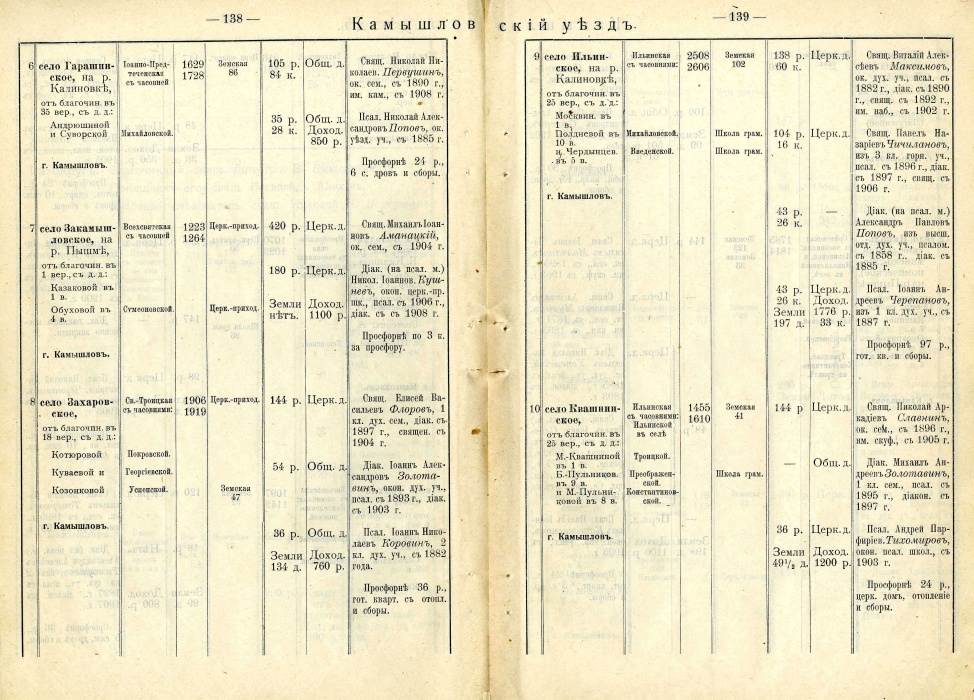 — 138 —
Камышловскій уѣздъ.
— 139 —
6
село Гарашин-
ское, на р.
Калиновкѣ,
отъ благочин. въ
35 вер., съ д. д.:
Андрюшиной
и Суворской
г. Камышловъ.
Іоанно-Пред-
теченская
съ часовней
Михайловской.
1629
1728
Земская
86
105 р.
84 к.
Общ. д.
35 р.
28 к.
Общ. д.
Доход.
850 р.
Свящ. Николай Ни-
колаев. Первушинъ,
ок. сем., съ 1890 г.,
им. кам., съ 1908 г.
Псал. Николай Алек-
сандровъ Поповъ, ок.
уѣзд. уч., съ 1885 г.
Просфорнѣ 24 р.,
6 с. дровъ и сборы.
7
село Закамыш-
ловское, на
р. Пышмѣ,
отъ благочин. въ
1 вер., съ д. д.:
Казаковой въ
1 в.
Обуховой въ
4 в.
г. Камышловъ.
Всехсвятская
съ часовней
Сумеоновской.
1223
1264
Церк.-приход.
Церк.-приход.
420 р.
Церк.д.
180 р.
Церк.д.
Земли
нѣтъ.
Доход.
1100 р.
Свящ. Михаилъ Іоан-
новъ Аманацкій,
ок. сем., съ 1904 г.
Діак. (на псал. м.)
Никол. Іоаннов. Куш-
невъ, окон. церк.-пр.
шк., псал. съ 1906 г.,
діак. съ 1908 г.
Просфорнѣ по 3 к.
за просфору.
8
село Захаров-
ское,
отъ благочин. въ
18 вер., съ д. д.:
Котюровой
Куваевой и
Козонковой
г. Камышловъ.
Св.-Троицкая
съ часовнями:
Покровской.
Георгіевской.
Успенской.
1906
1919
Церк.-приход.
Земская
47
144 р.
Церк.д.
54 р.
Общ. д.
36 р.
Общ. д.
Земли
134 д.
Доход.
760 р.
Свящ. Елисей Ва-
сильевъ Флоровъ, 1
кл. дух. сем., діак. съ
1897 г., священ. съ
1904 г.
Діак. Іоаннъ Алек-
сандровъ Золота-
винъ, окон. дух. уч.,
псал. съ 1893 г., діак.
съ 1903 г.
Псал. Іоаннъ Нико-
лаевъ Коровинъ, 2
кл. дух. уч., съ 1882
года.
Просфорнѣ 36 р.,
гот. кварт. съ отопл.
и сборы.
9
село Ильин-
ское, на р.
Калиновкѣ,
отъ благочин. въ
25 вер., съ д. д.:
Москвин. въ
1 в.
Полдневой въ
10 в.
и Чердынцев.
въ 5 в.
г. Камышловъ.
Ильинская
съ часовнями:
Михайловской.
Введенской.
2508
2606
Земская
102
Школа грам.
Школа грам.
138 р.
60 к.
Церк.д.
104 р.
16 к.
Церк.д.
43 р.
26 к.
—
43 р.
26 к.
Земли
197 д.
Церк.д.
Доход.
1776 р.
33 к.
Свящ. Виталій Алек-
сѣевъ Максимовъ,
ок. дух. уч., псал. съ
1882 г., діак. съ 1890
г., свящ. съ 1892 г.,
им. наб., съ 1902 г.
Свящ. Павелъ На-
заріевъ Чичилановъ,
изъ 3 кл. горн. уч.,
псал. съ 1896 г., діак.
съ 1897 г., свящ. съ
1906 г.
Діак. (на псал. м.)
Александръ Павловъ
Поповъ, изъ высш.
отд. дух. уч., псалом.
съ 1858 г., діак. съ
1885 г.
Псал. Іоаннъ Ан-
дреевъ Черепановъ,
изъ 1 кл. дух. уч., съ
1887 г.
Просфорнѣ 97 р.,
гот. кв. и сборы.
10
село Квашнин-
ское,
отъ благочин. въ
25 вер., съ д. д.:
М.-Квашниной
въ 1 в.
Б.-Пульников.
въ 9 в.
и М.-Пульни-
ковой въ 8 в.
г. Камышловъ.
Ильинская
съ часовнями:
Ильинской
въ селѣ
Троицкой.
Преображен-
ской.
Константинов-
ской.
1455
1610
Земская
41
Школа грам.
144 р
Церк.д.
—
Общ. д.
36 р.
Церк.д.
Земли
49½ д.
Доход.
1200 р.
Свящ. Николай Ар-
кадіевъ Славнинъ,
ок. сем., съ 1896 г.,
им. скуф., съ 1905 г.
Діак. Михаилъ Ан-
дреевъ Золотавинъ,
1 кл. сем., псал. съ
1895 г., діакон. съ
1897 г.
Псал. Андрей Пар-
фиріев. Тихомировъ,
окон. псал. школ., съ
1903 г.
Просфорнѣ 24 р.,
церк. домъ, отопленіе
и сборы.